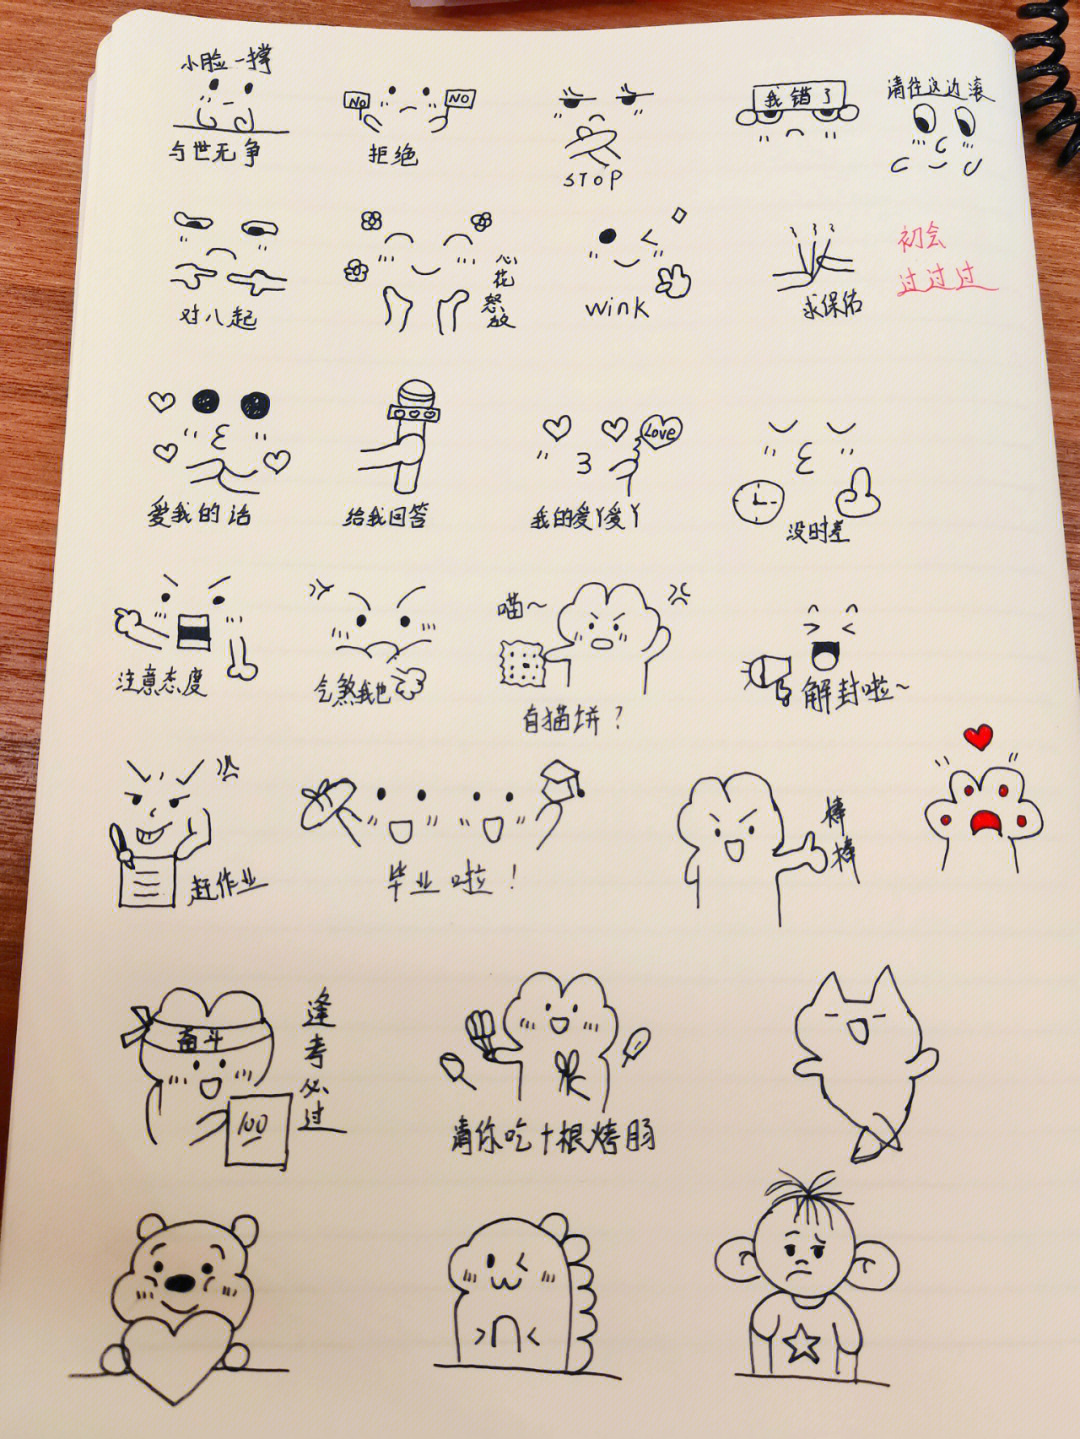 小脸一撑
与世无争
NO
NO
拒绝
STOP
我错了
请往这边滚
对八起
心花怒放
wink
求保佑
初会
过过过
爱我的话
给我回答
Love
我的爱丫爱丫
没时差
注意态度
气煞我也
喵~
有猫饼？
解封啦~
赶作业
毕业啦！
棒棒
奋斗
100
逢考必过
请你吃十根烤肠